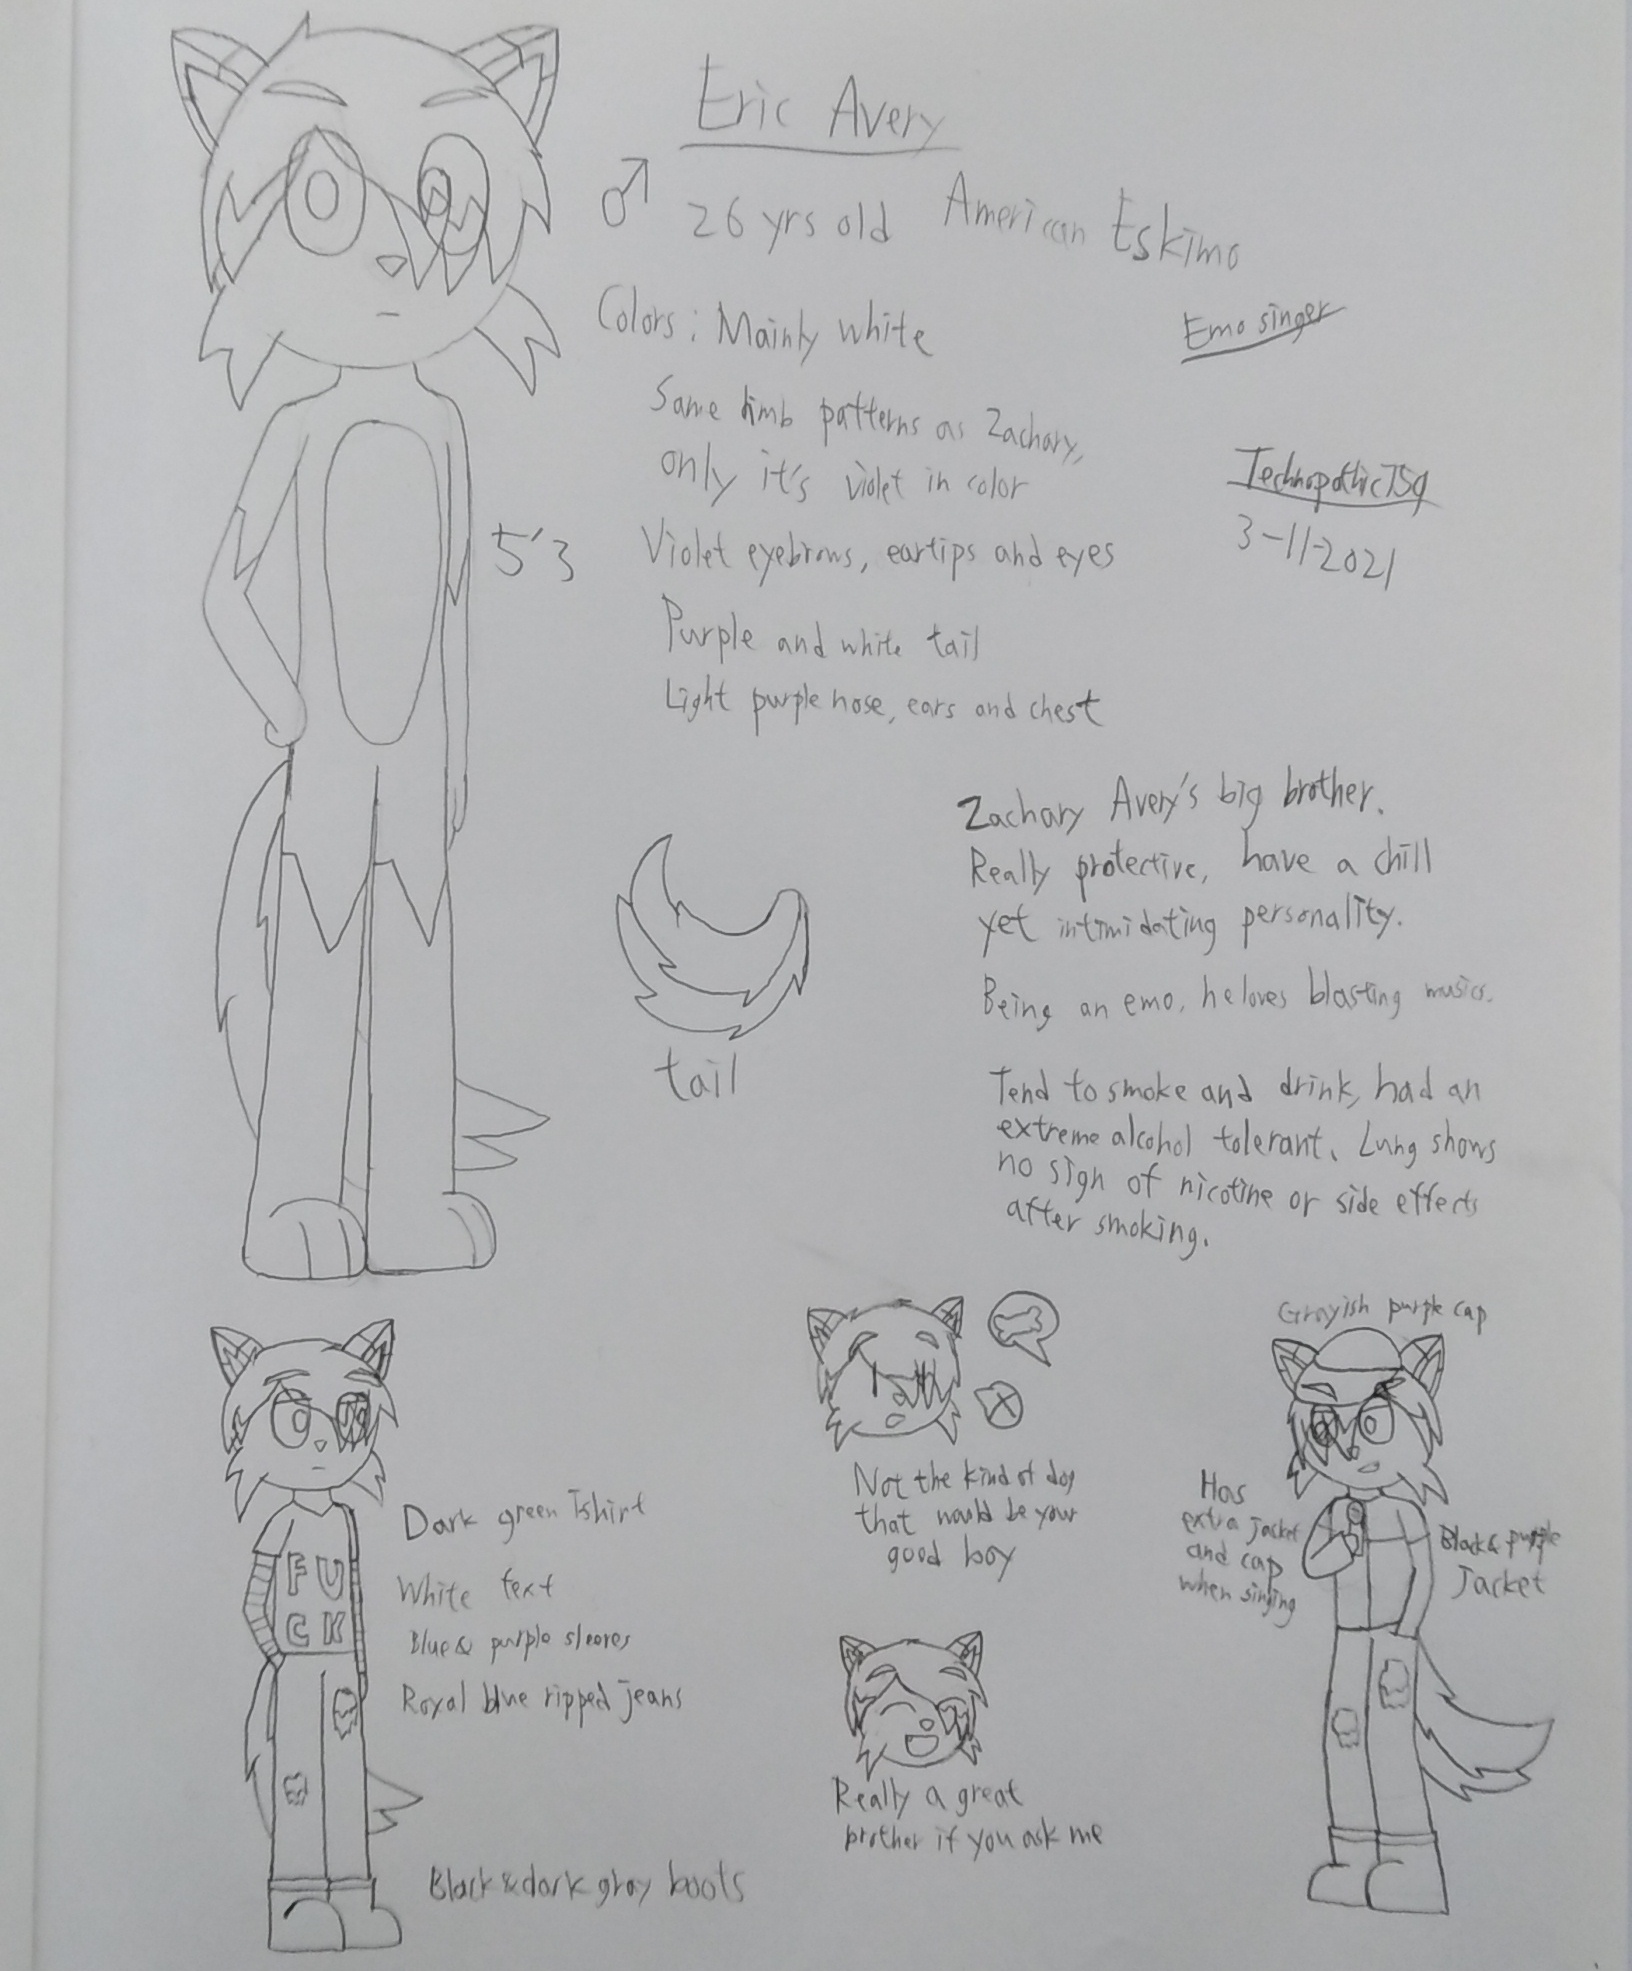 Eric Avery
♂ 26 yrs old American Eskimo
Colors: Mainly white
Emo singer
Same limb patterns as Zachary,
only it's violet in color
Technopathic75q
3-11-2021
5'3
Violet eyebrows, eartips and eyes
Purple and white tail
Light purple nose, ears and chest
Zachary Avery's big brother.
Really protective, have a chill
yet intimidating personality.
Being an emo, he loves blasting musics.
tail
Tend to smoke and drink, had an
extreme alcohol tolerant. Lung shows
no sign of nicotine or side effects
after smoking.
Dark green Tshirt
FU
CK
White text
Blue & purple sleeves
Royal blue ripped jeans
Black & dark gray boots
Not the kind of dog
that would be your
good boy
Really a great
brother if you ask me
Grayish purple cap
Has
extra jacket
and cap
when singing
Black & purple
Jacket